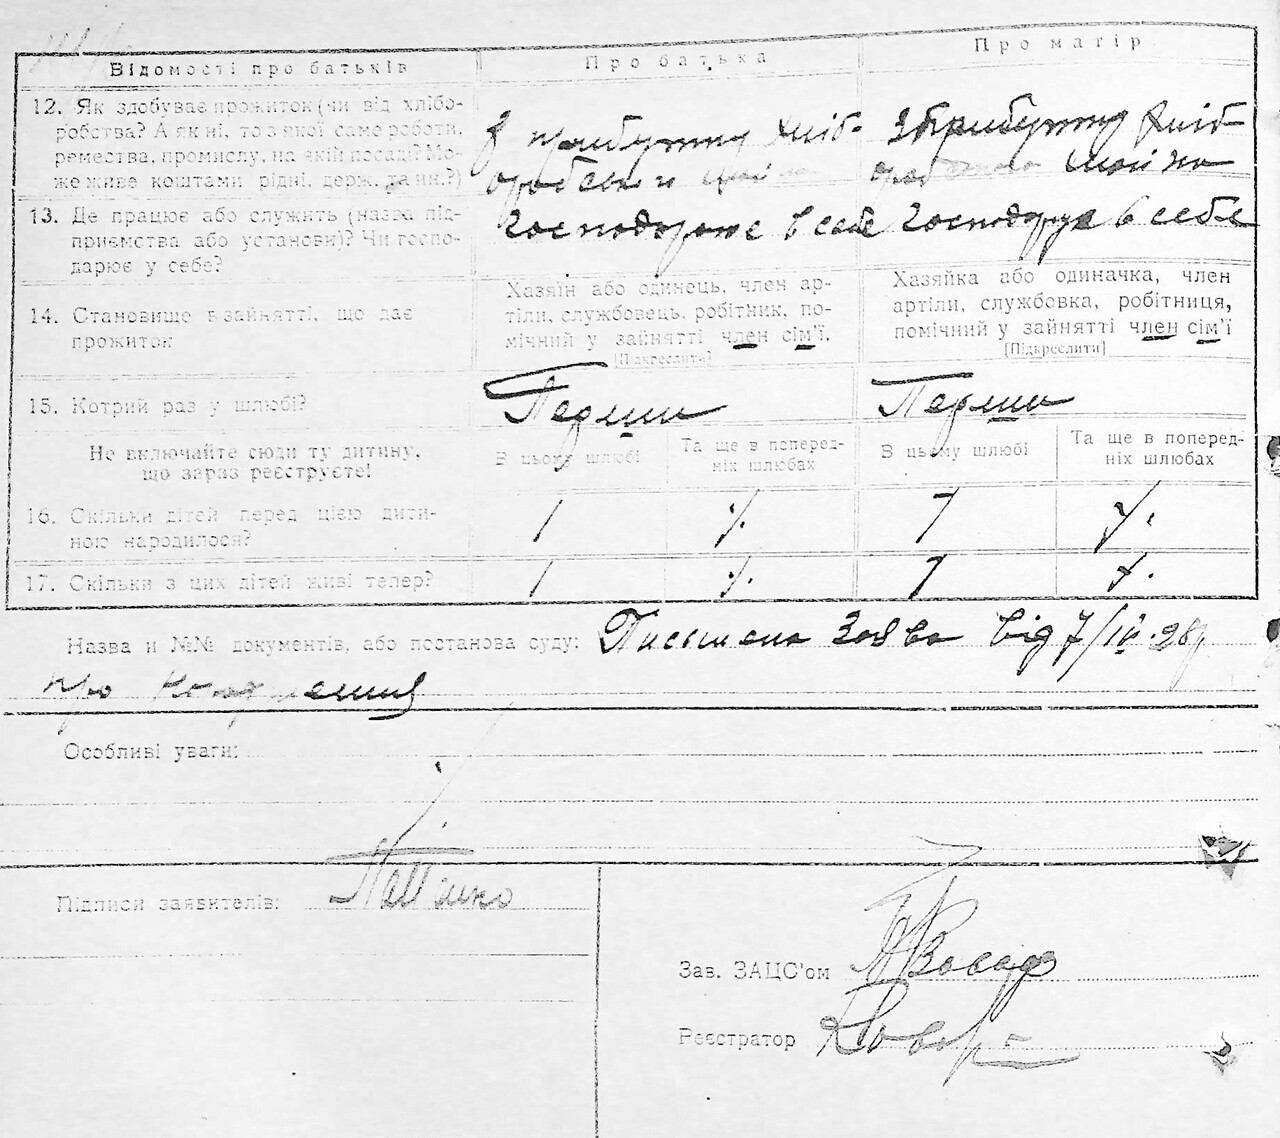 Відомості про батьків
Про батька
Про матір
12. Як здобуває прожиток (чи від хлібо-
робства? А як ні, то з якої саме роботи,
ремества, промислу, на якій посаді? Мо-
же живе коштами рідні, держ. та ин.?)
З прибутку хліб-
З прибутку хліб-
13. Де працює або служить (назва під-
приємства або установи)? Чи госпо-
дарює у себе?
Господарює в себе
Господарює в себе
14. Становище в зайнятті, що дає
прожиток
Хазяїн або одинець, член ар-
тіли, службовець, робітник, по-
мічний у зайнятті член сім'ї.
[Підкреслити]
Хазяйка або одиначка, член
артіли, службовка, робітниця,
помічний у зайнятті член сім'ї
[Підкреслити]
15. Котрий раз у шлюбі?
Перший
Перший
Не включайте сюди ту дитину,
що зараз реєструєте!
В цьому шлюбі
Та ще в поперед-
ніх шлюбах
В цьому шлюбі
Та ще в поперед-
ніх шлюбах
16. Скільки дітей перед цією дити-
ною народилося?
1
1
17. Скільки з цих дітей живі тепер?
1
1
Назва и №№ документів, або постанова суду: Письмена заява від 7/IV-28р
про
Особливі уваги:
Підписи заявителів:
Зав. ЗАЦС'ом
Реєстратор